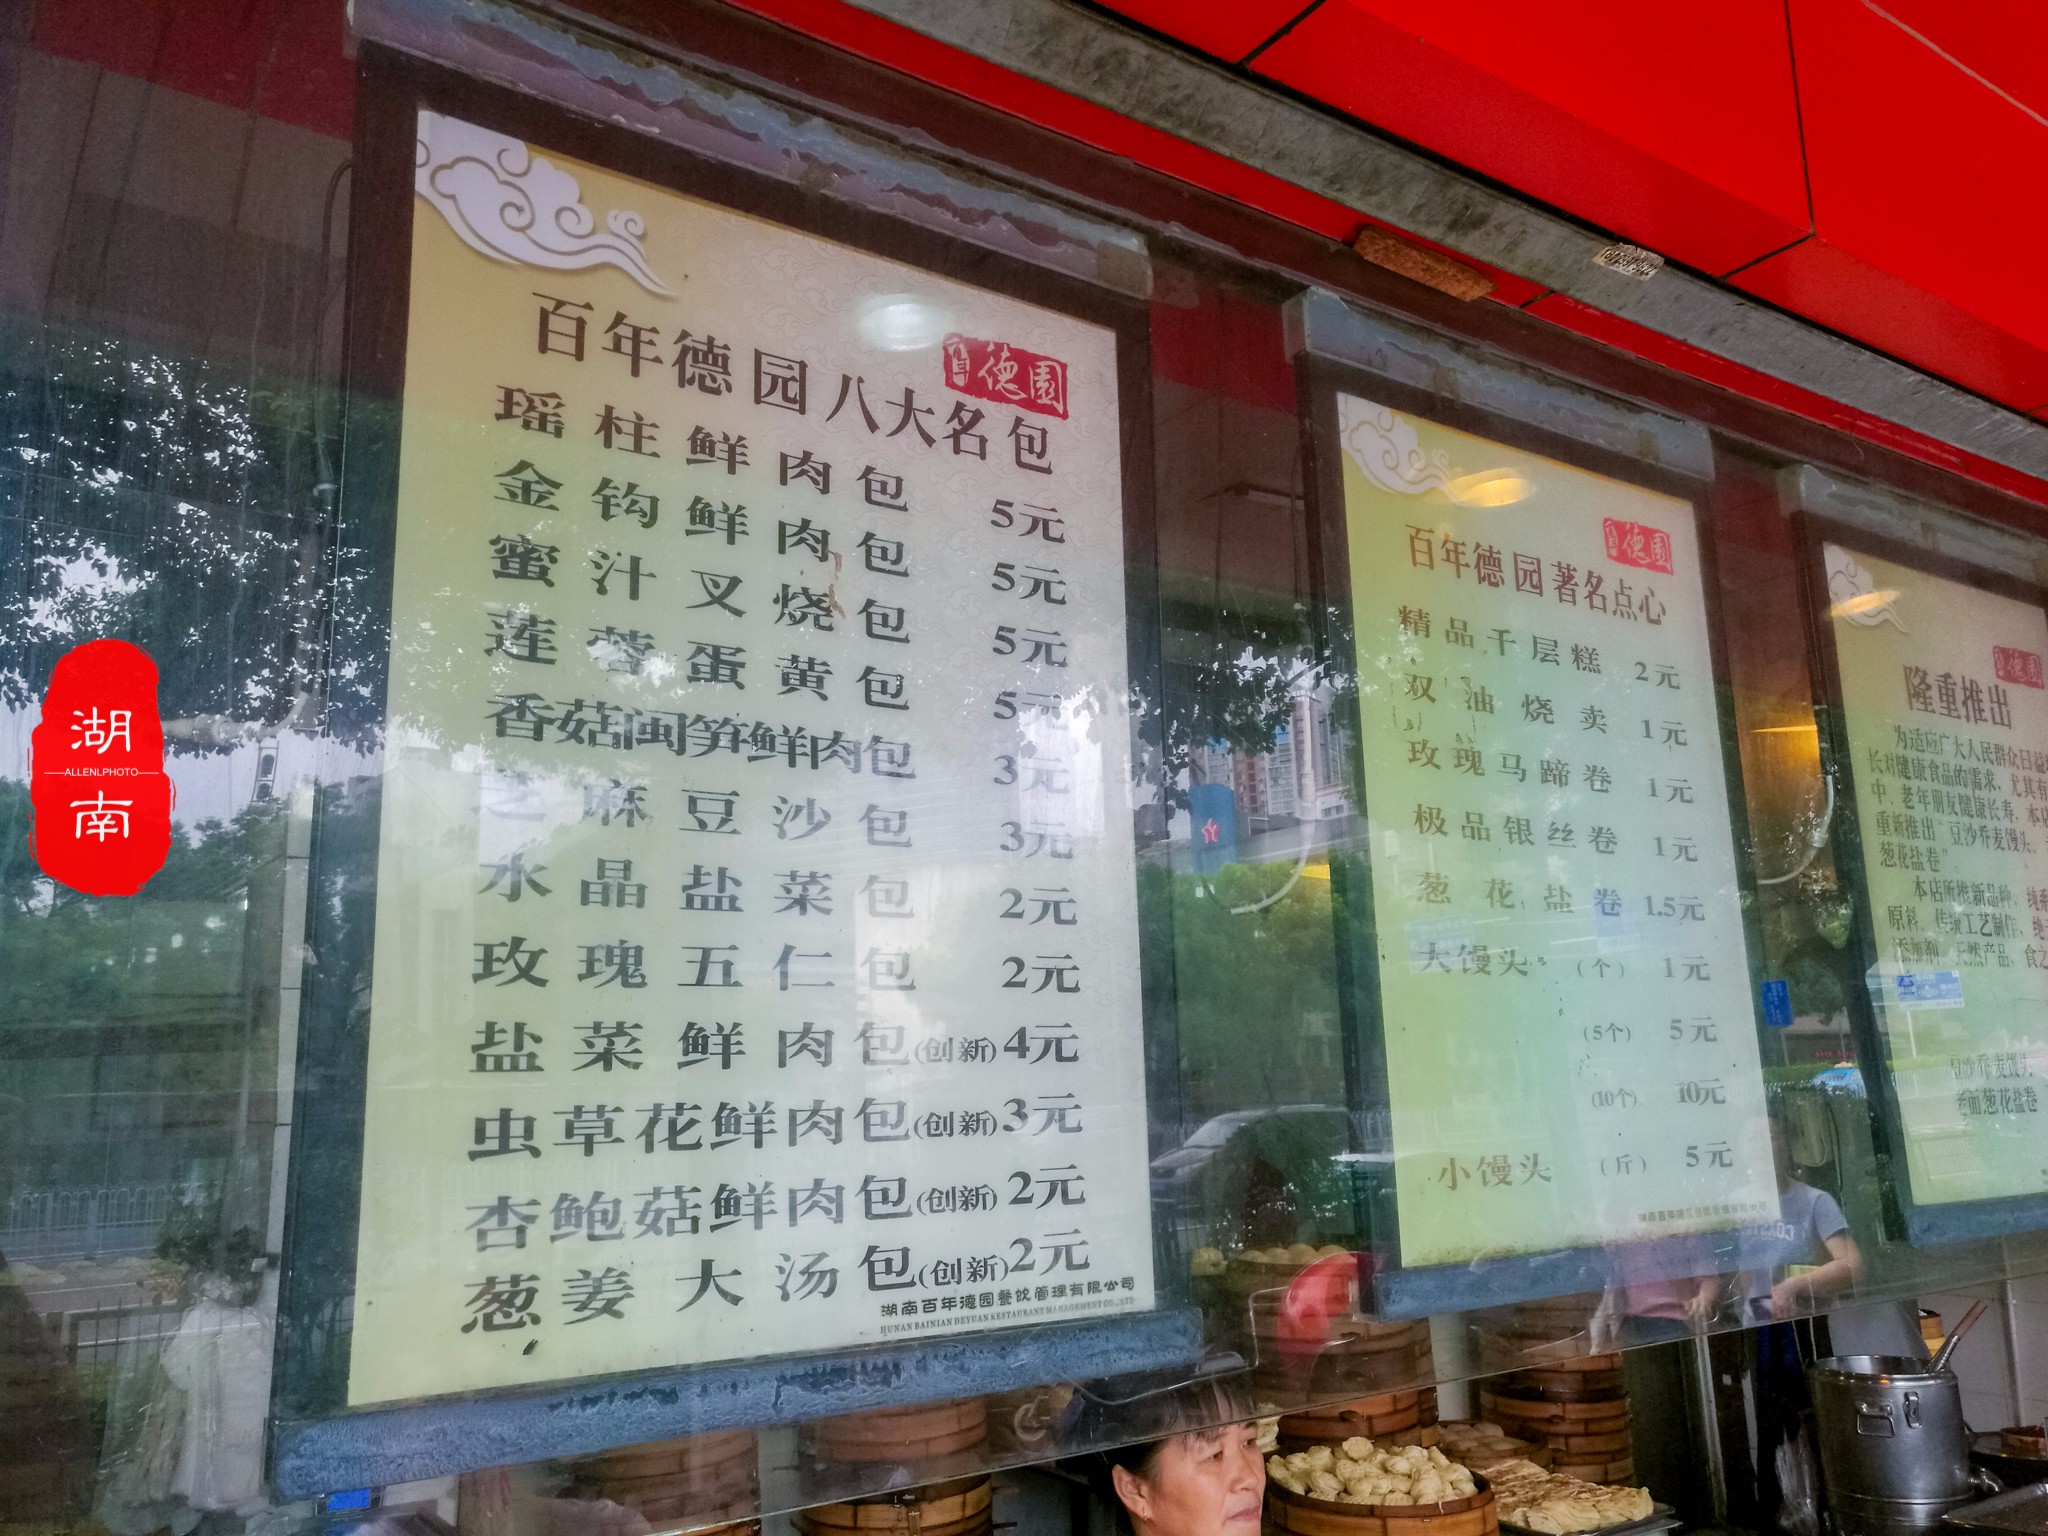 百年德园八大名包
德園
瑶柱鲜肉包 5元
金钩鲜肉包 5元
蜜汁叉烧包 5元
莲蓉蛋黄包 5元
香菇闽笋鲜肉包 3元
芝麻豆沙包 3元
水晶盐菜包 2元
玫瑰五仁包 2元
盐菜鲜肉包(创新) 4元
虫草花鲜肉包(创新) 3元
杏鲍菇鲜肉包(创新) 2元
葱姜大汤包(创新) 2元
湖南百年德园餐饮管理有限公司
HUNAN BAINIAN DEYUAN RESTAURANT MANAGEMENT CO.,LTD
德園
百年德园著名点心
精品千层糕 2元
双油烧卖 1元
玫瑰马蹄卷 1元
极品银丝卷 1元
葱花盐卷 1.5元
大馒头 (个) 1元
(5个) 5元
(10个) 10元
小馒头 (斤) 5元
德園
隆重推出
为适应广大人民群众日益
长对健康食品的需求,尤其有
中,老年朋友健康长寿,本店
重新推出"豆沙荞麦馒头、
葱花盐卷"
本店所推新品种,纯系
原料,传统工艺制作,绝
添加剂,天然产品,食之
豆沙荞麦馒头
老面葱花盐卷
湖南
ALLENLPHOTO